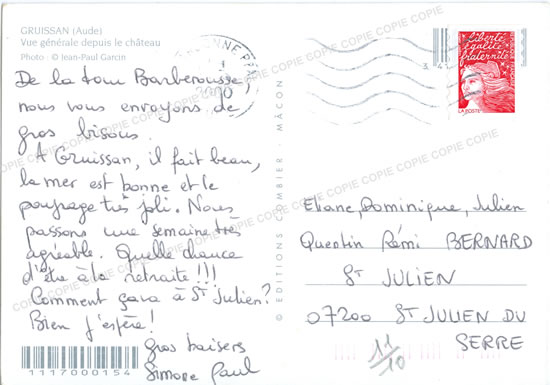 GRUISSAN (Aude)
Vue générale depuis le château
Photo : © Jean-Paul Garcin
De la tour Barberousse,
nous vous envoyons de
gros bisous.
A Gruissan, il fait beau,
la mer est bonne et le
paysage très joli. Nous
passons une semaine très
agréable. Quelle chance
d'être à la retraite !!!
Comment ça va à St Julien?
Bien j'espère!
gros baisers
Simone Paul
1117000154
© EDITIONS COMBIER - MÂCON
2000
liberté
égalité
fraternité
LA POSTE
Eliane, Dominique, Julien
Quentin Rémi BERNARD
ST JULIEN
07200 ST JULIEN DU
SERRE
11/10
COPIE COPIE COPIE COPIE COPIE COPIE